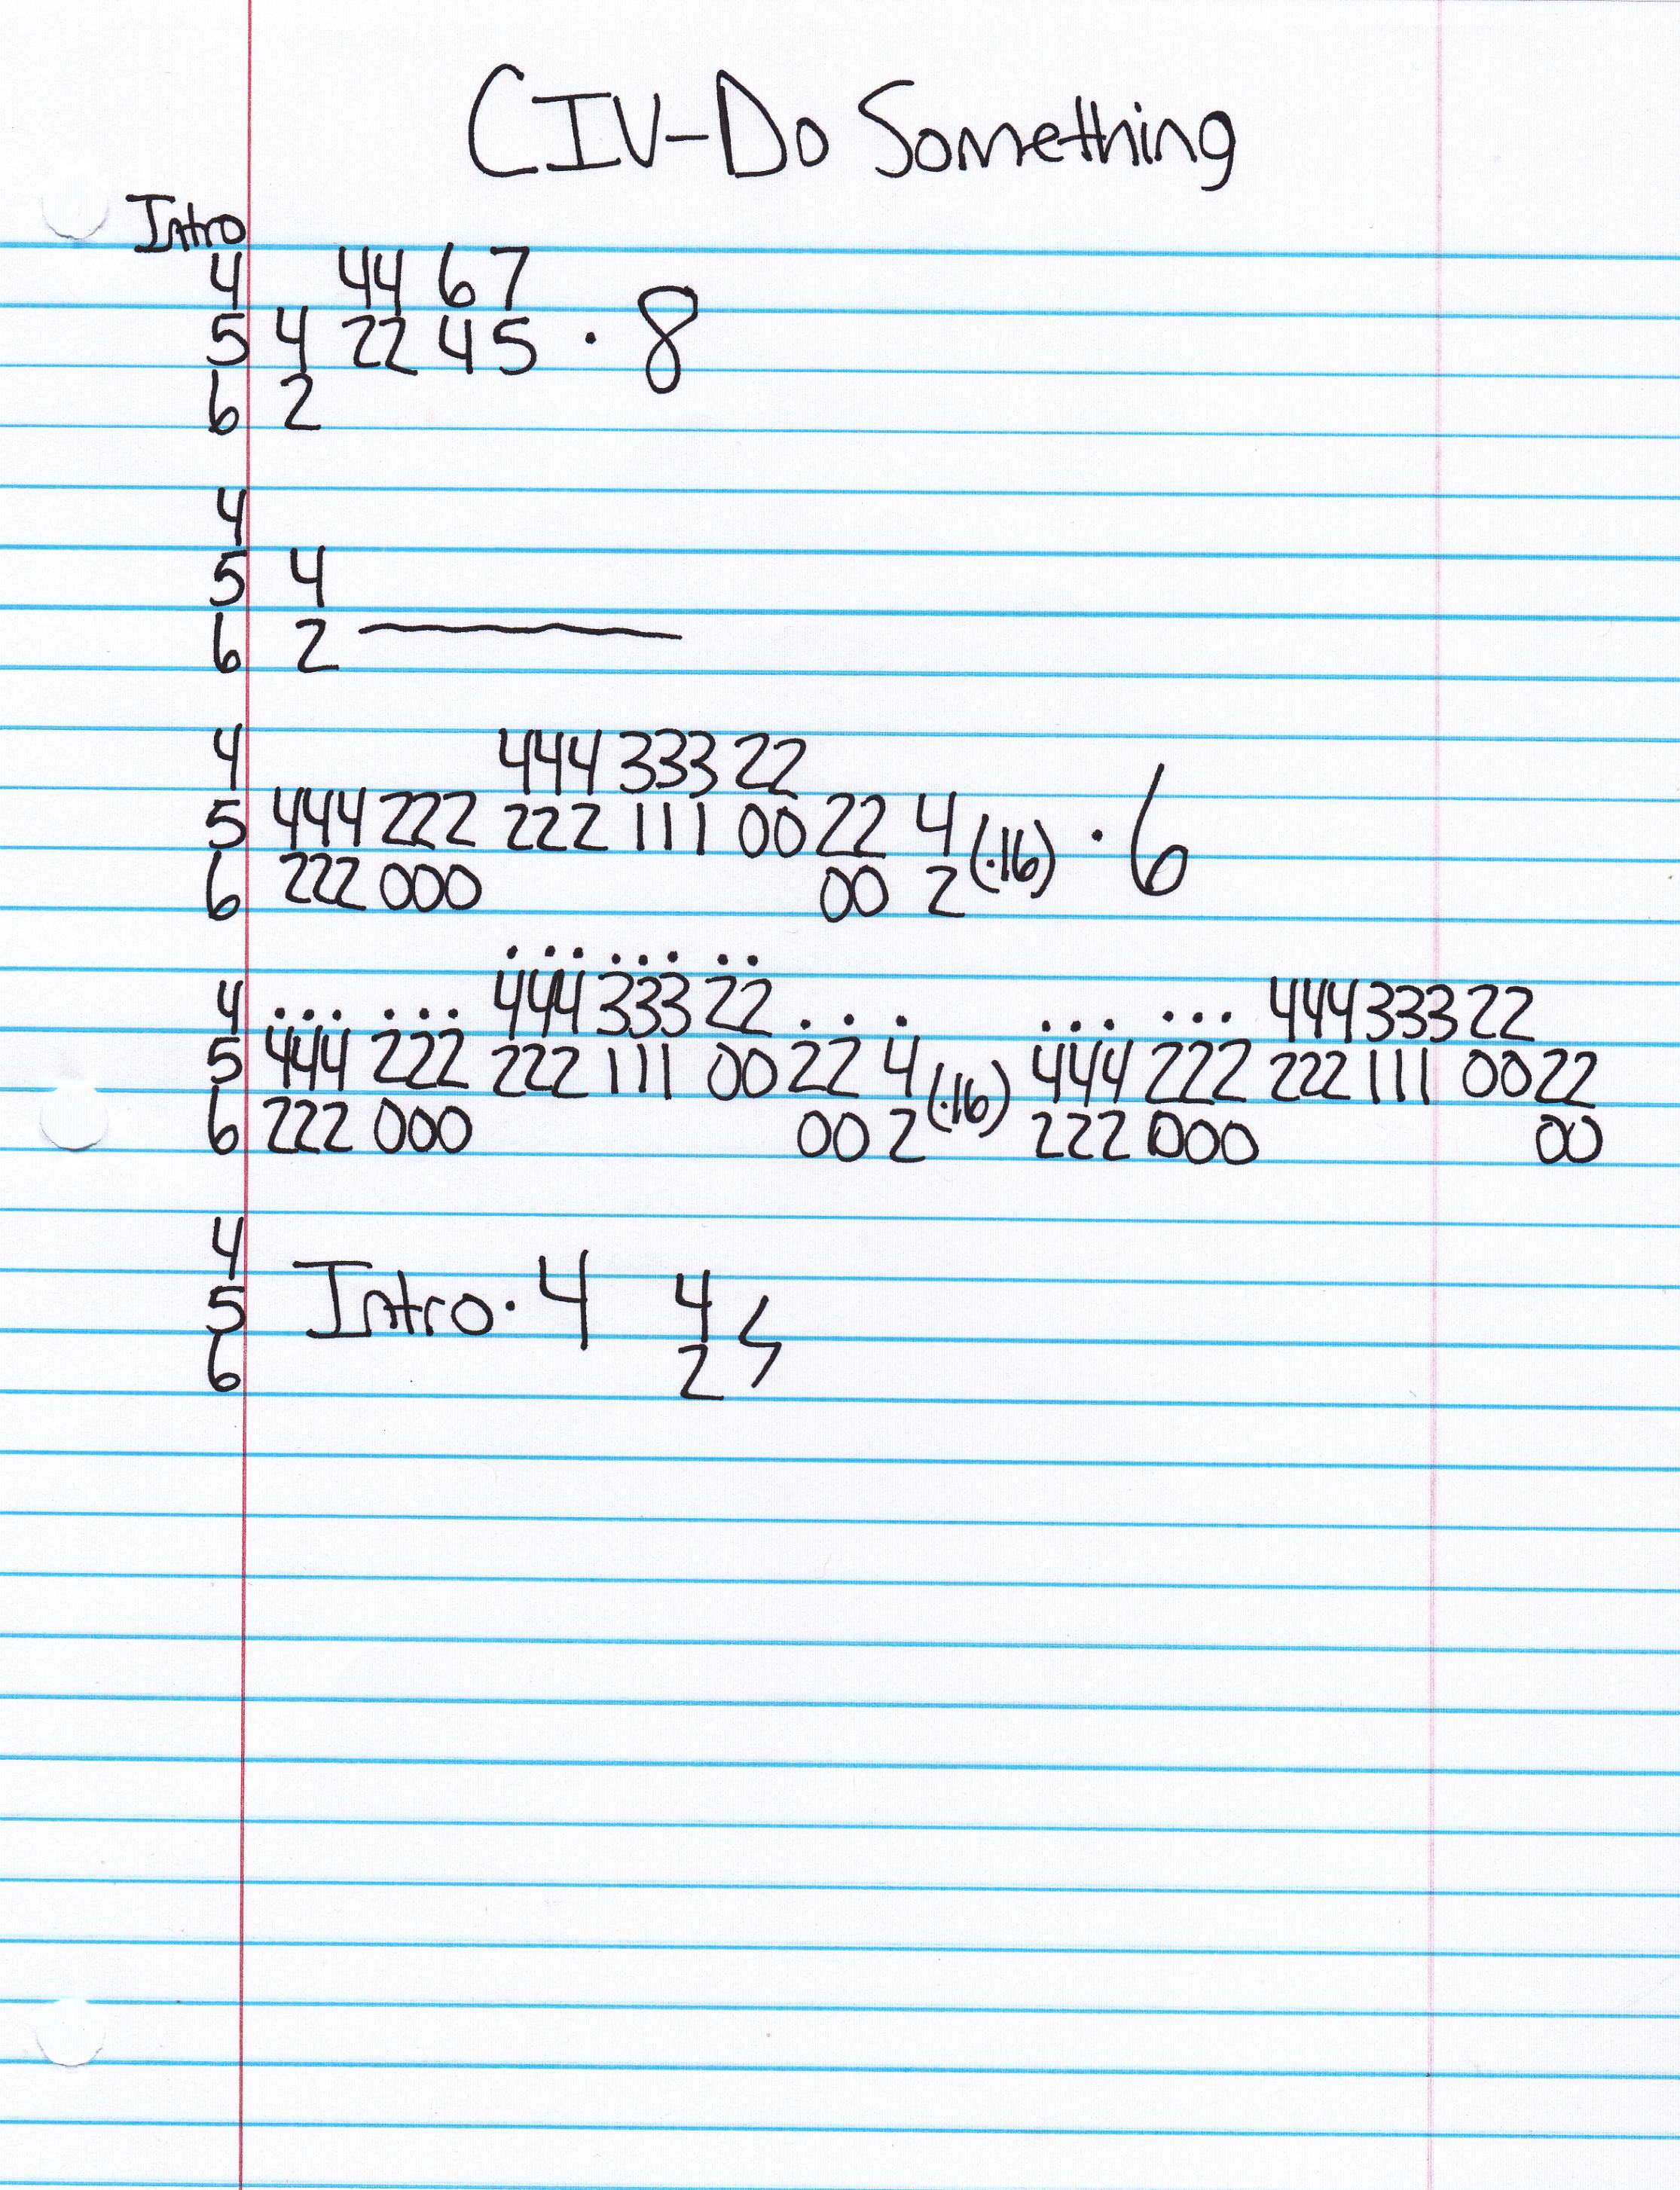 CIV-Do Something
Intro
4 44 67
5 4 22 45 · 8
6 2
4
5 4
6 2
4 444 333 22
5 444 222 222 111 00 22 4 (·16) · 6
6 222 000 00 2
... ... ..
4 ... ... 444 333 22 . . . ... ... 444 333 22
5 444 222 222 111 00 22 4 (·16) 444 222 222 111 00 22
6 222 000 00 2 222 000 00
4
5 Intro · 4 4
6 2